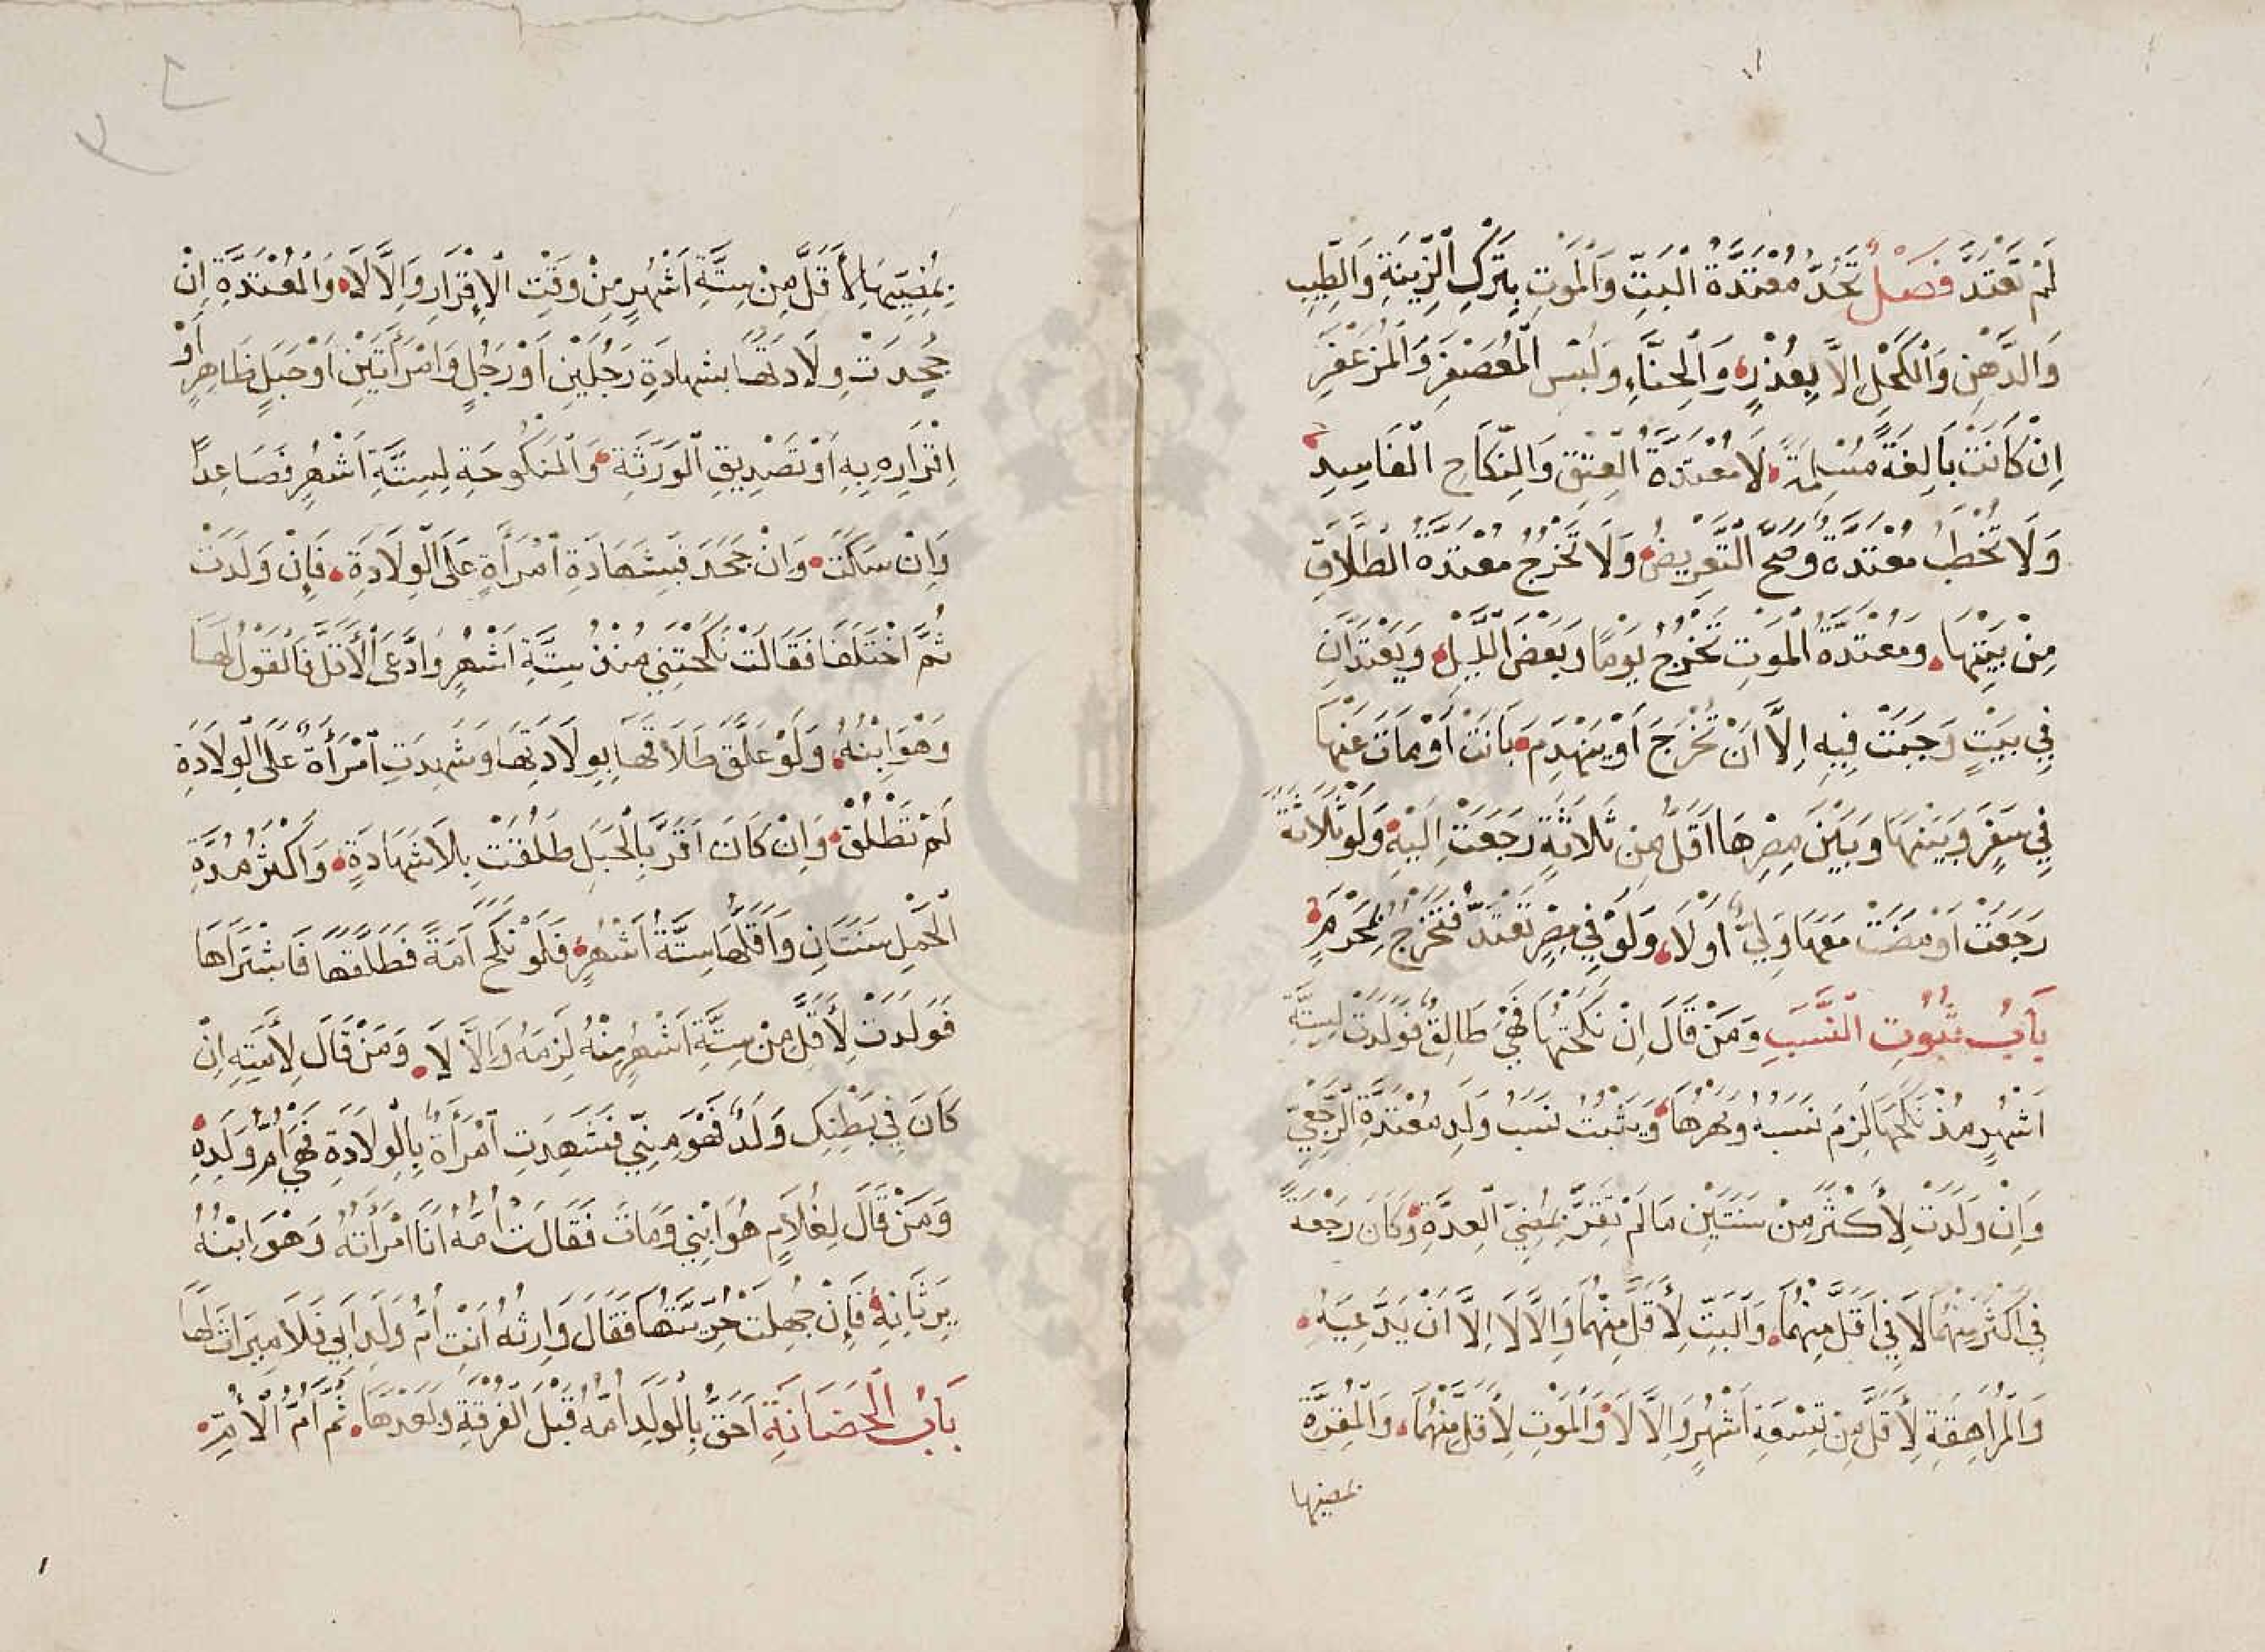 لَمْ تَعْتَدَّ فَصْلٌ تَحُدُّ مُعْتَدَّةُ الْبَتِّ وَالْمَوْتِ بِتَرْكِ الزِّينَةِ وَالطِّيبِ
وَالدُّهْنِ وَالْكُحْلِ إِلَّا بِعُذْرٍ وَالْحِنَّاءِ وَلُبْسِ الْمُعَصْفَرِ وَالْمُزَعْفَرِ
اِنْ كَانَتْ بَالِغَةً مُسْلِمَةً لَا مُعْتَدَّةُ الْعِتْقِ وَالنِّكَاحِ الْفَاسِدِ
وَلَا تُخْطَبُ مُعْتَدَّةٌ وَصَحَّ التَّعْرِيضُ وَلَا تَخْرُجُ مُعْتَدَّةُ الطَّلَاقِ
مِنْ بَيْتِهَا وَمُعْتَدَّةُ الْمَوْتِ تَخْرُجُ يَوْمًا وَبَعْضَ اللَّيْلِ وَيَعْتَدَّانِ
فِي بَيْتٍ وَجَبَتْ فِيهِ اِلَّا اَنْ تُخْرَجَ اَوْ يَنْهَدِمَ بَانَتْ اَوْ مَاتَ عَنْهَا
فِي سَفَرٍ وَبَيْنَهَا وَبَيْنَ مِصْرِهَا اَقَلُّ مِنْ ثَلَاثَةٍ رَجَعَتْ اِلَيْهِ وَلَوْ ثَلَاثَةً
رَجَعَتْ اَوْ مَضَتْ مَعَهَا وَلِيٌّ اَوْ لَا وَلَوْ فِي مِصْرٍ تَعْتَدُّ فَتَخْرُجُ بِمَحْرَمٍ
بَابُ ثُبُوتِ النَّسَبِ وَمَنْ قَالَ اِنْ نَكَحْتُهَا فَهِيَ طَالِقٌ فَوَلَدَتْ لِسِتَّةِ
اَشْهُرٍ مُذْ نَكَحَهَا لَزِمَ نَسَبُهُ وَمَهْرُهَا وَيَثْبُتُ نَسَبُ وَلَدِ مُعْتَدَّةِ الرَّجْعِيِّ
وَاِنْ وَلَدَتْ لِأَكْثَرَ مِنْ سَنَتَيْنِ مَا لَمْ تُقِرَّ بِمُضِيِّ الْعِدَّةِ وَكَانَ رَجْعَةً
فِي اَكْثَرَ مِنْهُمَا لَا فِي اَقَلَّ مِنْهُمَا وَالْبَتِّ لِأَقَلَّ مِنْهُمَا وَاِلَّا لَا اِلَّا اَنْ يَدَّعِيَهُ
وَالْمُرَاهِقَةِ لِأَقَلَّ مِنْ تِسْعَةِ اَشْهُرٍ وَاِلَّا لَا وَالْمَوْتِ لِأَقَلَّ مِنْهُمَا وَالْمُقِرَّةِ
بمضيها
بِمُضِيِّهَا لِأَقَلَّ مِنْ سِتَّةِ اَشْهُرٍ مِنْ وَقْتِ الْإِقْرَارِ وَاِلَّا لَا وَالْمُعْتَدَّةِ اِنْ
جُحِدَتْ وِلَادَتُهَا بِشَهَادَةِ رَجُلَيْنِ اَوْ رَجُلٍ وَامْرَأَتَيْنِ اَوْ حَبَلٍ ظَاهِرٍ أَوْ
اِقْرَارِهِ بِهِ اَوْ تَصْدِيقِ الْوَرَثَةِ وَالْمَنْكُوحَةِ لِسِتَّةِ اَشْهُرٍ فَصَاعِدًا
وَاِنْ سَكَتَ وَاِنْ جَحَدَ فَبِشَهَادَةِ امْرَأَةٍ عَلَى الْوِلَادَةِ فَإِنْ وَلَدَتْ
ثُمَّ اخْتَلَفَا فَقَالَتْ نَكَحْتَنِي مُنْذُ سِتَّةِ اَشْهُرٍ وَادَّعَى الْأَقَلَّ فَالْقَوْلُ لَهَا
وَهْوَ ابْنُهُ وَلَوْ عَلَّقَ طَلَاقَهَا بِوِلَادَتِهَا وَشَهِدَتِ امْرَأَةٌ عَلَى الْوِلَادَةِ
لَمْ تَطْلُقْ وَاِنْ كَانَ اَقَرَّ بِالْحَبَلِ طَلُقَتْ بِلَا شَهَادَةٍ وَاَكْثَرُ مُدَّةِ
الْحَمْلِ سَنَتَانِ وَاَقَلُّهَا سِتَّةُ اَشْهُرٍ فَلَوْ نَكَحَ اَمَةً فَطَلَّقَهَا فَاشْتَرَاهَا
فَوَلَدَتْ لِأَقَلَّ مِنْ سِتَّةِ اَشْهُرٍ مِنْهُ لَزِمَهُ وَاِلَّا لَا وَمَنْ قَالَ لِأَمَتِهِ اِنْ
كَانَ فِي بَطْنِكِ وَلَدٌ فَهْوَ مِنِّي فَشَهِدَتِ امْرَأَةٌ بِالْوِلَادَةِ فَهِيَ اُمُّ وَلَدِهِ
وَمَنْ قَالَ لِغُلَامٍ هُوَ ابْنِي وَمَاتَ فَقَالَتْ اُمُّهُ اَنَا امْرَأَتُهُ وَهْوَ ابْنُهُ
يَرِثَانِهِ فَإِنْ جُهِلَتْ حُرِّيَّتُهَا فَقَالَ وَارِثُهُ اَنْتِ اُمُّ وَلَدِ اَبِي فَلَا مِيرَاثَ لَهَا
بَابُ الْحَضَانَةِ اَحَقُّ بِالْوَلَدِ اُمُّهُ قَبْلَ الْفُرْقَةِ وَبَعْدَهَا ثُمَّ اُمُّ الْأُمِّ